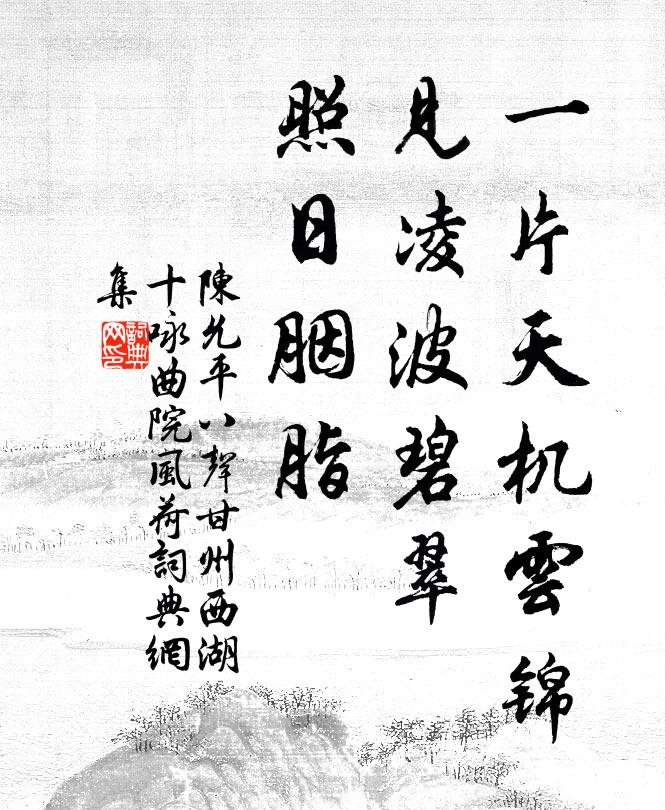 一片天机雲锦
見凌波碧翠
照日胭脂
陳允平八聲甘州西湖
十咏曲院風荷詞典網
集
詞典网印